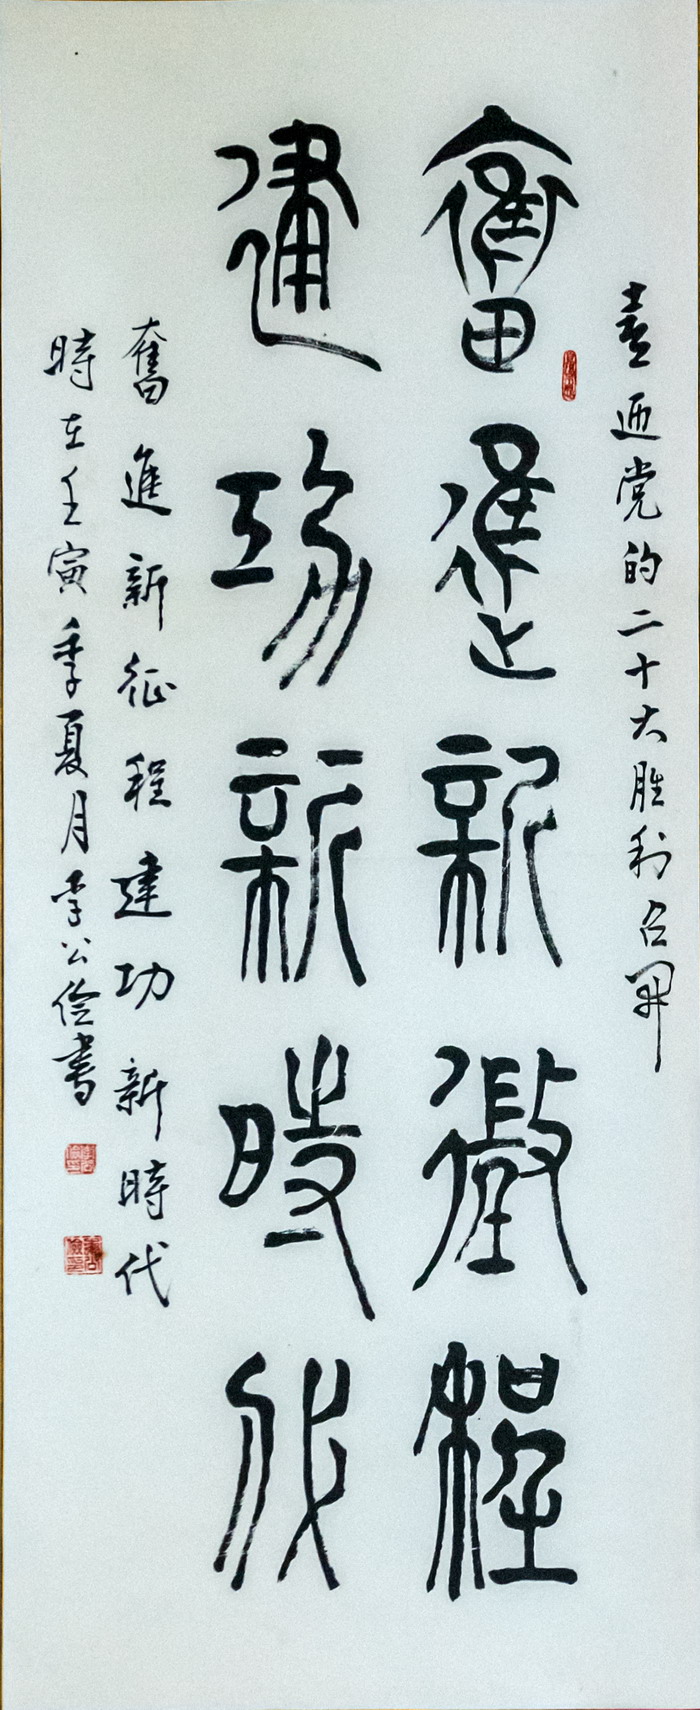 喜迎党的二十大胜利召开
奮進新徵程
建功新時代
奮進新征程建功新時代
時在壬寅季夏月李公儉書